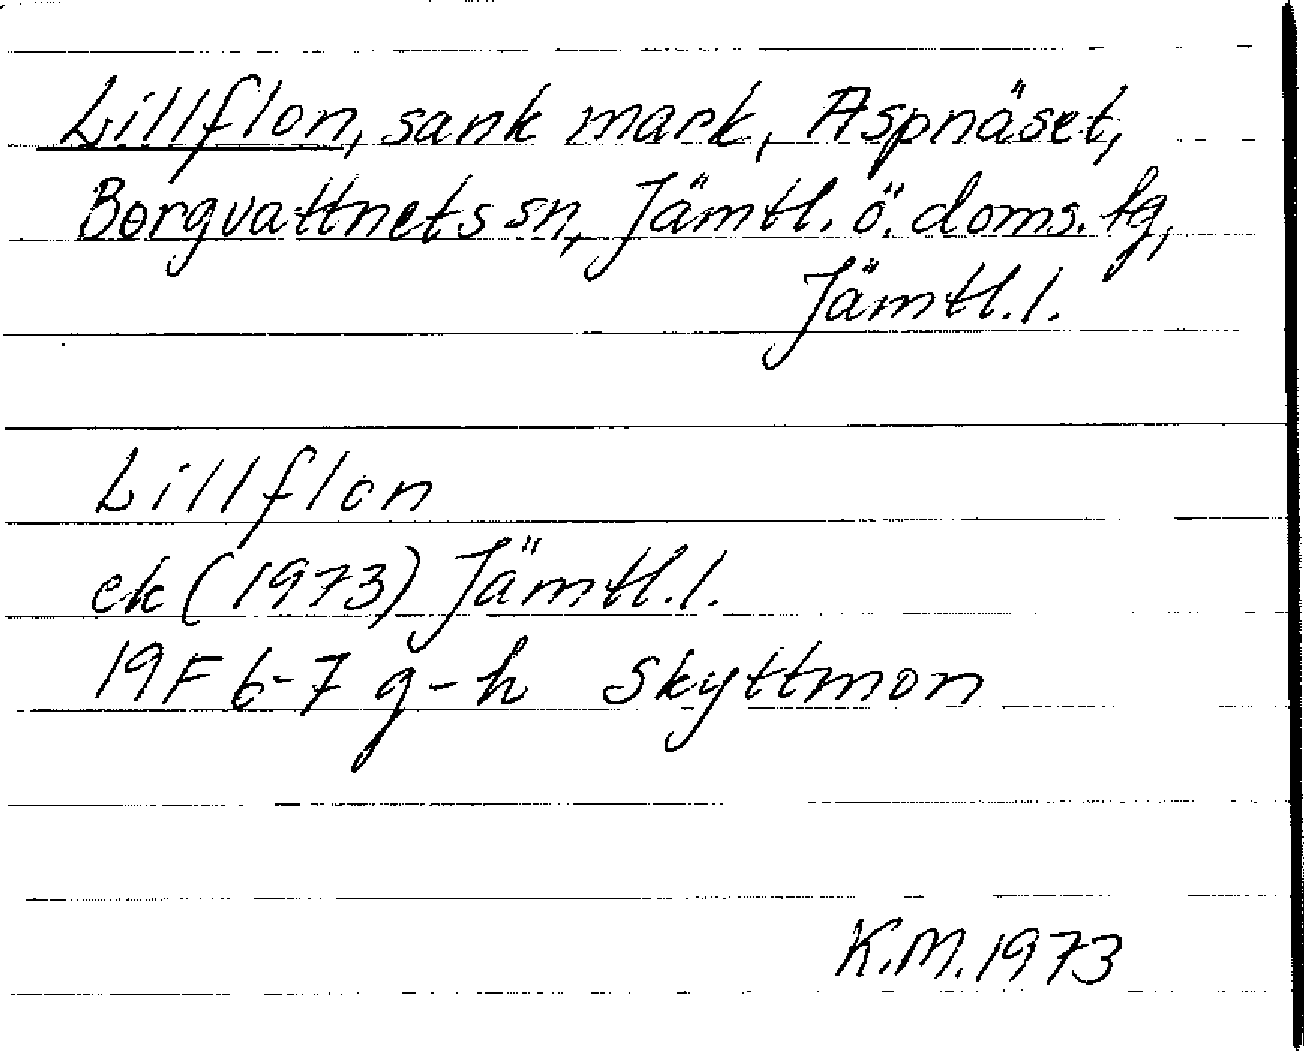 Lillflon, sank mark, Aspnäset,
Borgvattnets sn, Jämtl. ö. doms. tg,
Jämtl.l.
Lillflon
ek (1973) Jämtl.l.
19F 6-7 g-h Skyttmon
K.M. 1973